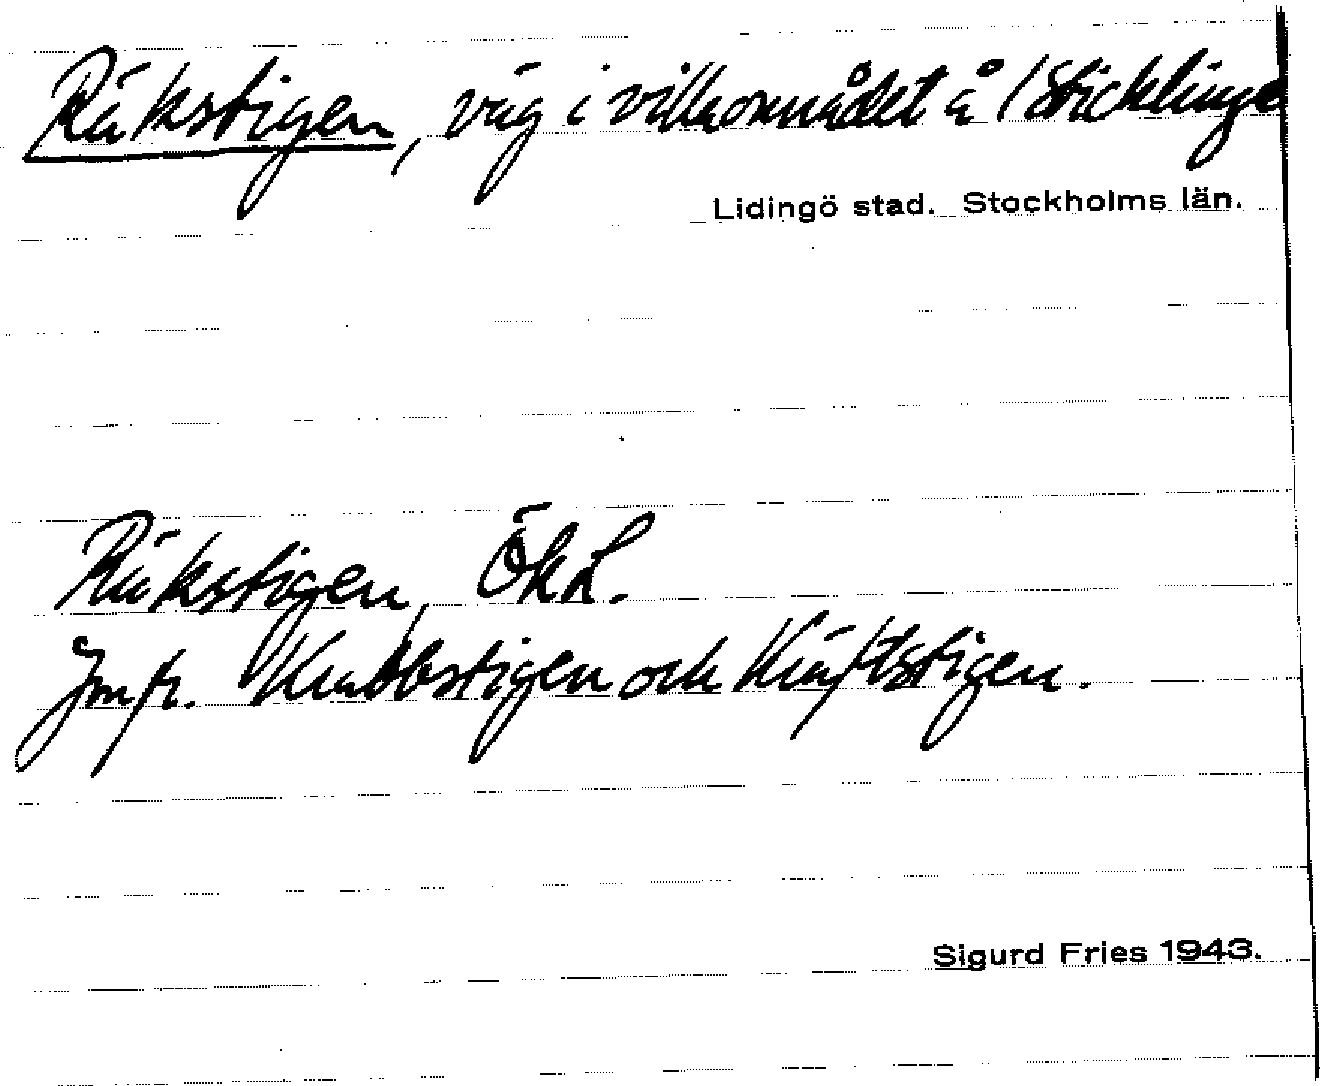 Räkstigen, väg i villaområdet å (Sticklinge
Lidingö stad. Stockholms län.
Räkstigen, ÖkL.
Jmfr. Krabbstigen och Kräftstigen.
Sigurd Fries 1943.